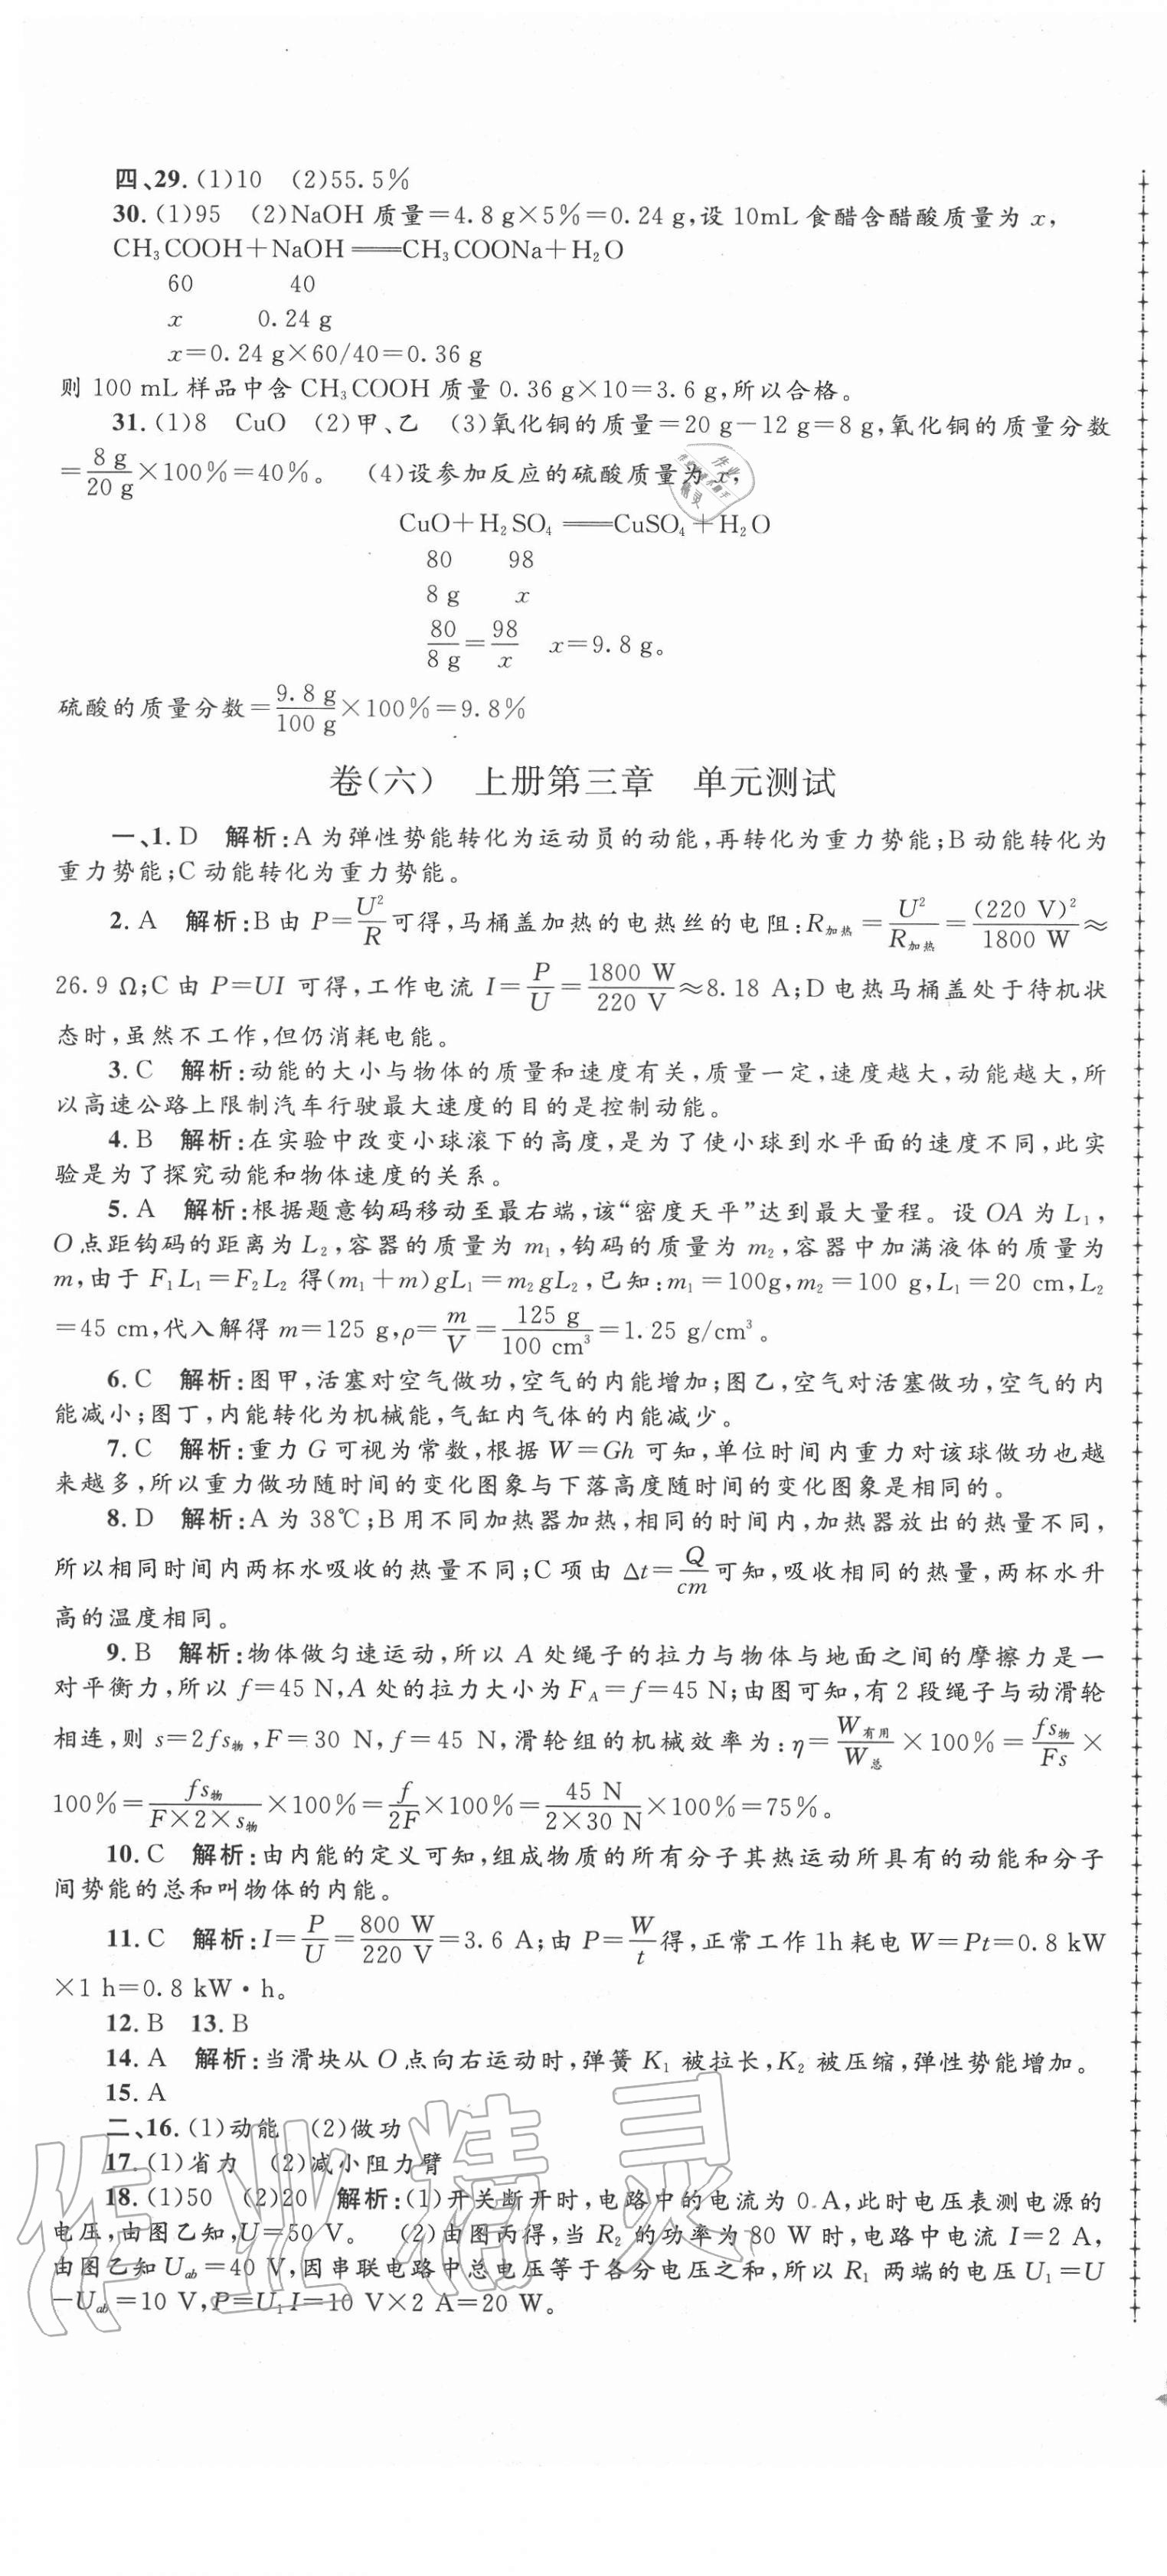 四、29.(1)10 (2)55.5%
30.(1)95 (2)NaOH 质量=4.8 g×5%=0.24 g,设 10mL 食醋含醋酸质量为 x,
CH₃COOH+NaOH══CH₃COONa+H₂O
60 40
x 0.24 g
x=0.24 g×60/40=0.36 g
则 100 mL 样品中含 CH₃COOH 质量 0.36 g×10=3.6 g,所以合格。
31.(1)8 CuO (2)甲、乙 (3)氧化铜的质量=20 g-12 g=8 g,氧化铜的质量分数
=8 g/20 g×100%=40%。 (4)设参加反应的硫酸质量为 x,
CuO+H₂SO₄══CuSO₄+H₂O
80 98
8 g x
80/8 g=98/x x=9.8 g。
硫酸的质量分数=9.8 g/100 g×100%=9.8%
卷(六) 上册第三章 单元测试
一、1.D 解析:A 为弹性势能转化为运动员的动能,再转化为重力势能;B 动能转化为
重力势能;C 动能转化为重力势能。
2.A 解析:B 由 P=U²/R可得,马桶盖加热的电热丝的电阻:R加热=U²/R加热=(220 V)²/1800 W≈
26.9 Ω;C 由 P=UI 可得,工作电流 I=P/U=1800 W/220 V≈8.18 A;D 电热马桶盖处于待机状
态时,虽然不工作,但仍消耗电能。
3.C 解析:动能的大小与物体的质量和速度有关,质量一定,速度越大,动能越大,所
以高速公路上限制汽车行驶最大速度的目的是控制动能。
4.B 解析:在实验中改变小球滚下的高度,是为了使小球到水平面的速度不同,此实
验是为了探究动能和物体速度的关系。
5.A 解析:根据题意钩码移动至最右端,该“密度天平”达到最大量程。设 OA 为 L₁,
O点距钩码的距离为 L₂,容器的质量为 m₁,钩码的质量为 m₂,容器中加满液体的质量为
m,由于 F₁L₁=F₂L₂ 得(m₁+m)gL₁=m₂gL₂,已知:m₁=100g,m₂=100 g,L₁=20 cm,L₂
=45 cm,代入解得 m=125 g,ρ=m/V=125 g/100 cm³=1.25 g/cm³。
6.C 解析:图甲,活塞对空气做功,空气的内能增加;图乙,空气对活塞做功,空气的内
能减小;图丁,内能转化为机械能,气缸内气体的内能减少。
7.C 解析:重力 G 可视为常数,根据 W=Gh 可知,单位时间内重力对该球做功也越
来越多,所以重力做功随时间的变化图象与下落高度随时间的变化图象是相同的。
8.D 解析:A 为 38℃;B用不同加热器加热,相同的时间内,加热器放出的热量不同,
所以相同时间内两杯水吸收的热量不同;C 项由 Δt=Q/cm可知,吸收相同的热量,两杯水升
高的温度相同。
9.B 解析:物体做匀速运动,所以 A 处绳子的拉力与物体与地面之间的摩擦力是一
对平衡力,所以 f=45 N,A 处的拉力大小为 F_A=f=45 N;由图可知,有 2 段绳子与动滑轮
相连,则 s=2fs物,F=30 N,f=45 N,滑轮组的机械效率为:η=W有用/W总×100%=fs物/Fs×
100%=fs物/F×2×s物×100%=f/2F×100%=45 N/2×30 N×100%=75%。
10.C 解析:由内能的定义可知,组成物质的所有分子其热运动所具有的动能和分子
间势能的总和叫物体的内能。
11.C 解析:I=P/U=800 W/220 V=3.6 A;由 P=W/t得,正常工作 1h 耗电 W=Pt=0.8 kW
×1 h=0.8 kW·h。
12.B 13.B
14.A 解析:当滑块从 O 点向右运动时,弹簧 K₁ 被拉长,K₂ 被压缩,弹性势能增加。
15.A
二、16.(1)动能 (2)做功
17.(1)省力 (2)减小阻力臂
18.(1)50 (2)20 解析:(1)开关断开时,电路中的电流为 0 A,此时电压表测电源的
电压,由图乙知,U=50 V。 (2)由图丙得,当 R₂ 的功率为 80 W 时,电路中电流 I=2 A,
由图乙知 U_ab=40 V,因串联电路中总电压等于各分电压之和,所以 R₁ 两端的电压 U₁=U
-U_ab=10 V,P=U₁I=10 V×2 A=20 W。
作业精灵